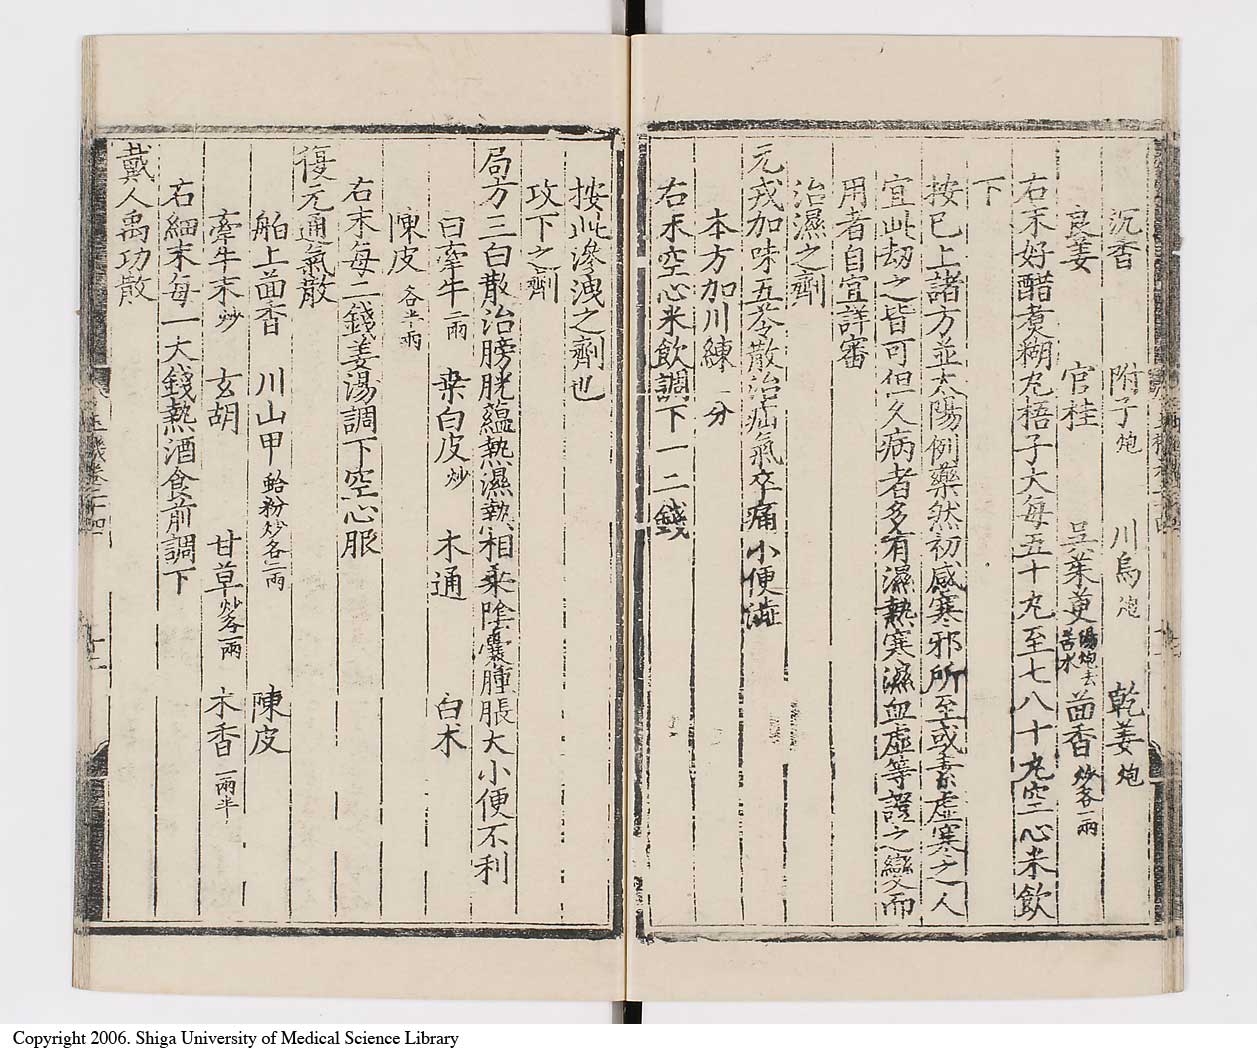 沉香 附子炮 川烏炮 乾姜炮
良姜 官桂 吳茱萸湯炮去苦水 茴香炒各一兩
右末好醋煑糊丸梧子大每五十丸至七八十丸空心米飲
下
按已上諸方並太陽例藥然初感寒邪所至或素虛寒之人
宜此劫之皆可但久病者多有濕熱寒濕血虛等證之變而
用者自宜詳審
治濕之劑
元戎加味五苓散治疝氣卒痛小便澁
本方加川練一分
右末空心米飲調下一二錢
按此滲洩之劑也
攻下之劑
局方三白散治膀胱蘊熱濕熱相乗陰囊腫脹大小便不利
白牽牛二兩 桒白皮炒 木通 白术
陳皮各半兩
右末每二錢姜湯調下空心服
復元通氣散
舶上茴香 川山甲蛤粉炒各二兩 陳皮
牽牛末炒 玄胡 甘草炒各一兩 木香一兩半
右細末每一大錢熱酒食前調下
戴人禹功散
十二
Copyright 2006. Shiga University of Medical Science Library